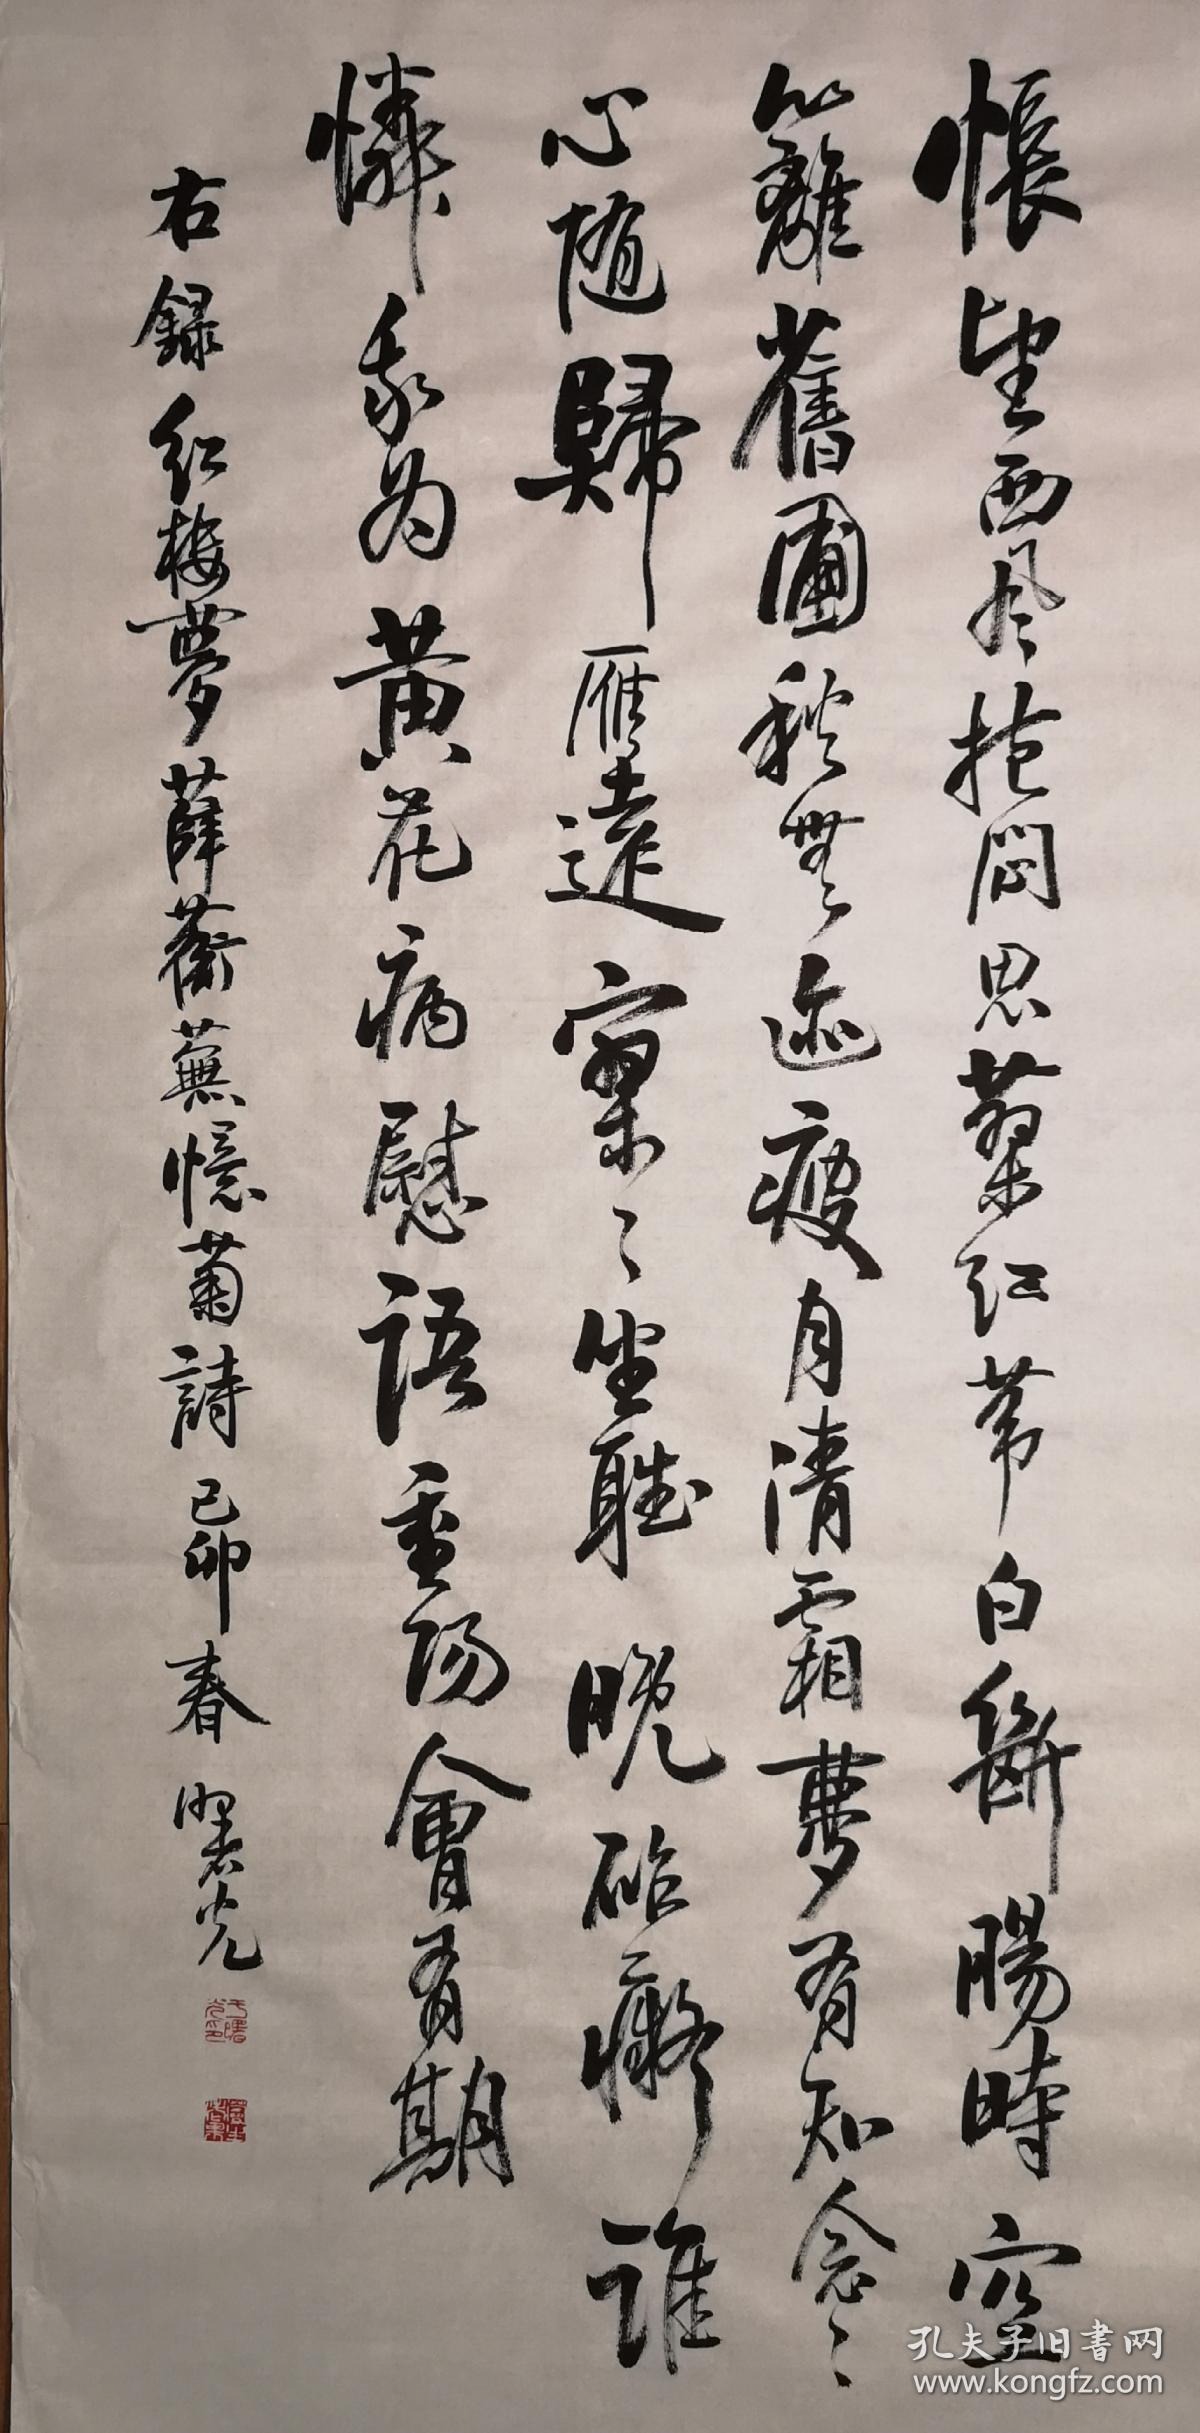 悵望西风抱悶思蓼红苇白斷腸時空
籬舊圃秋無迹瘦月清霜夢有知念〻
心随歸雁遠寥〻坐聽晚砧癡誰
憐我为黄花病慰語重陽會有期
右録红楼夢薛蘅蕪憶菊詩己卯春曙光
孔夫子旧书网
www.kongfz.com